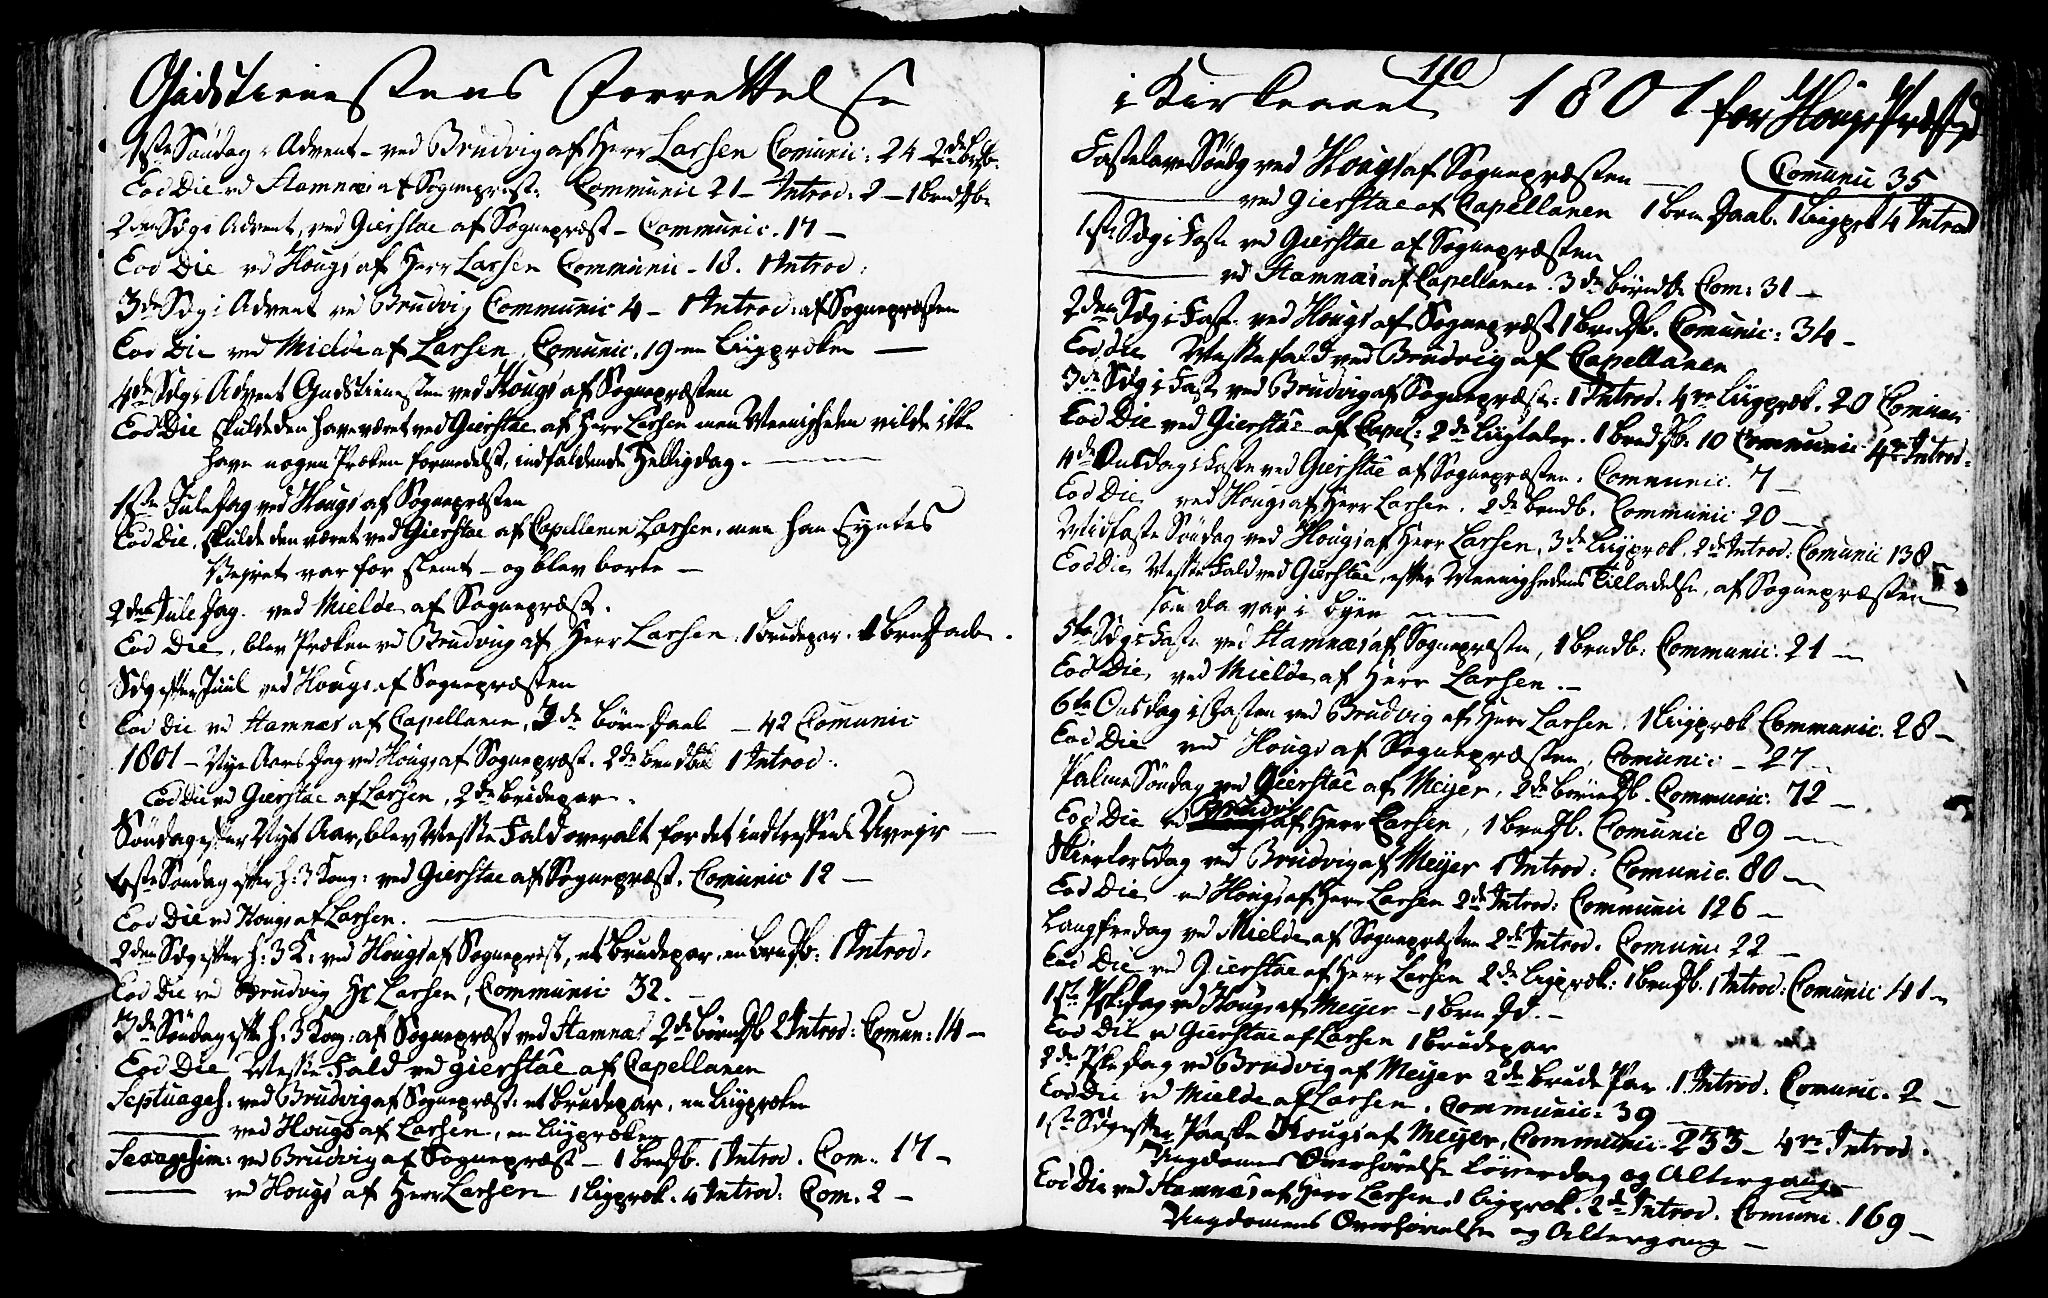 Gudstienestens Forrettelse
1ste Søndag i Advent - ved Brudvig af Herr Larsen Comunic: 24 2de brdb.
Eod Die vd Stamnæs af Sognepræst: Communic 21 - Introd: 2 - 1 brndb.
2den Sdg i Advent, ved Gierstae af Sognepræst - Communic. 17 -
Eod Die vd Hougs af Herr Larsen Communic - 18. 1 Introd:
3de Sdg i Advent vd Brudvig Communic 4 - 1 Introd: af Sognepræsten
Eod Die ved Mielde af Larsen, Comunic. 19 en Liigprken -
4de Sdg i Advent Gudstienesten ved Hougs af Sognepræsten
Eod Die skulde den have været ved Gierstae af Herr Larsen men Meenigheden vilde ikke
have nogen Præken formedelst, indfaldende Helligdag. -
1ste Juledag ved Hougs af Sognepræsten
Eod Die, skulde den været ved Gierstae af Capellanen Larsen, men han Syntes
Veiret var for slemt - og blev borte -
2den Jule Dag. ved Mielde af Sognepræst.
Eod Die, blev Præken vd Brudvig af Herr Larsen, 1 brudepar. 1 brn Daab.
Sdg efter Juul ved Hougs af Sognepræsten
Eod Die vd Stamnæs af Capellanen, 3de børn Daab - 42 Comunic
1801 - Nye Aars Dag ved Hougs af Sognepræst. 2de brndb 1 Introd.
Eod Die vd Gierstae af Larsen, 2de brudepar.
Søndag efter Nyt Aar, blev Messe Fald overalt for det indtreffende Uveyr -
1ste Søndag efter H: 3 Kong: ved Gierstae af Sognepræst. Comunic 12 -
Eod Die vd Hougs af Larsen.
2den Sdg efter H: 3 K: ved Hougs af Sognepræst, et brudepar, en brndb: 1 Introd.
Eod Die vd Brudvig Hr Larsen, Communic 32. -
3de Søndag efter H: 3 Kong: af Sognepræst ved Stamnæs 2de børndb 2 Introd: Comun: 14 -
Eod Die Messe Fald ved Gierstae af Capellanen
Septuages. ved Brudvig af Sognepræst. et brudepar, en Liigpræken
ved Hougs af Larsen, en Liigpræken
Sexagesim: vd Brudvig af Sognepræst - 1 brndb. 1 Introd. Com: 17 -
vd Hougs af Herr Larsen 1 Ligpræk. 4 Introd: Com. 2 -
110
i Kirkeaaret 1801 for Hougs Præstgd
Fastelavns Søndg ved Hougs af Sognepræsten - Comunic 35
ved Gierstae af Capellanen 1 brn Daab. 1 Liigprk 4 Introd
1ste Sdg i Faste vd Gierstae af Sognepræsten
vd Stamnæs af Capellanen. 3de børndb Com: 31 -
2den Sdg i Fast. ved Hougs af Sognepræst 1 brndb. Comunic: 34 -
Eod Die Messefald ved Brudvig af Capellanen
3de Sdg i Fast ved Brudvig af Sognepræst: 1 Introd. 4re Liigpræk. 20 Comunic
Eod Die ved Gierstae af Capel: 2de Liigtaler. 1 brndb. 10 Communic 4re Introd:
4de Onsdag i Faste ved Gierstae af Sognepræsten. Communic. 7 -
Eod Die ved Hougs af Herr Larsen. 2de brndb. Communic 20 -
Midfaste Søndag ved Hougs af Herr Larsen, 3de Liigpræk. 2de Introd: Comunic 138
Eod Die Messe Fald ved Gierstae, efter Meenighedens Tilladelse, af Sognepræsten
som da var i Byen
5te Sdg i Faste ved Stamnæs af Sognepræsten, 1 brndb. Communic. 21 -
Eod Die, ved Mielde af Herr Larsen. -
6te Onsdag i Fasten ved Brudvig af Herr Larsen. 1 Liigpræk Communic. 28 -
Eod Die ved Hougs af Sognepræsten, Comunic - 27 -
Palme Søndag ved Gierstae af Meyer, 2de børndb. Communic. 72 -
Eod Die vd Brudvig af Herr Larsen, 1 brndb. Comunic 89 -
Skiertorsdag ved Brudvig af Meyer 1 Introd: Comunic. 80 -
Eod Die vd Hougs af Herr Larsen 2de Introd: Communic 126 -
Langfredag ved Mielde af Sognepræsten 2de Introd. Comunic 22 -
Eod Die vd Gierstae af Herr Larsen 2de Ligpræk: 1 brndb. 1 Introd: Comunic 41 -
1ste Pskedag vd Hougs af Meyer - 1 brn D. -
Eod Die vd Gierstae af Larsen 1 brudepar
2de Pske Dag vd Brudvig af Meyer 2de brude Par. 1 Introd. Comunic. 2 -
Eod Die vd Mielde af Larsen. Communic: 39
1ste Sdg efter Paaske Hougs af Meyer, Communic. 233 - 4re Introd.
Ungdomens Overhørelse Løverdag og Altergang
Eod Die ved Stamnæs af Herr Larsen 1 Ligpræk. 2de Introd. Comunic. 169 -
Ungdomens Overhørelse og Altergang -